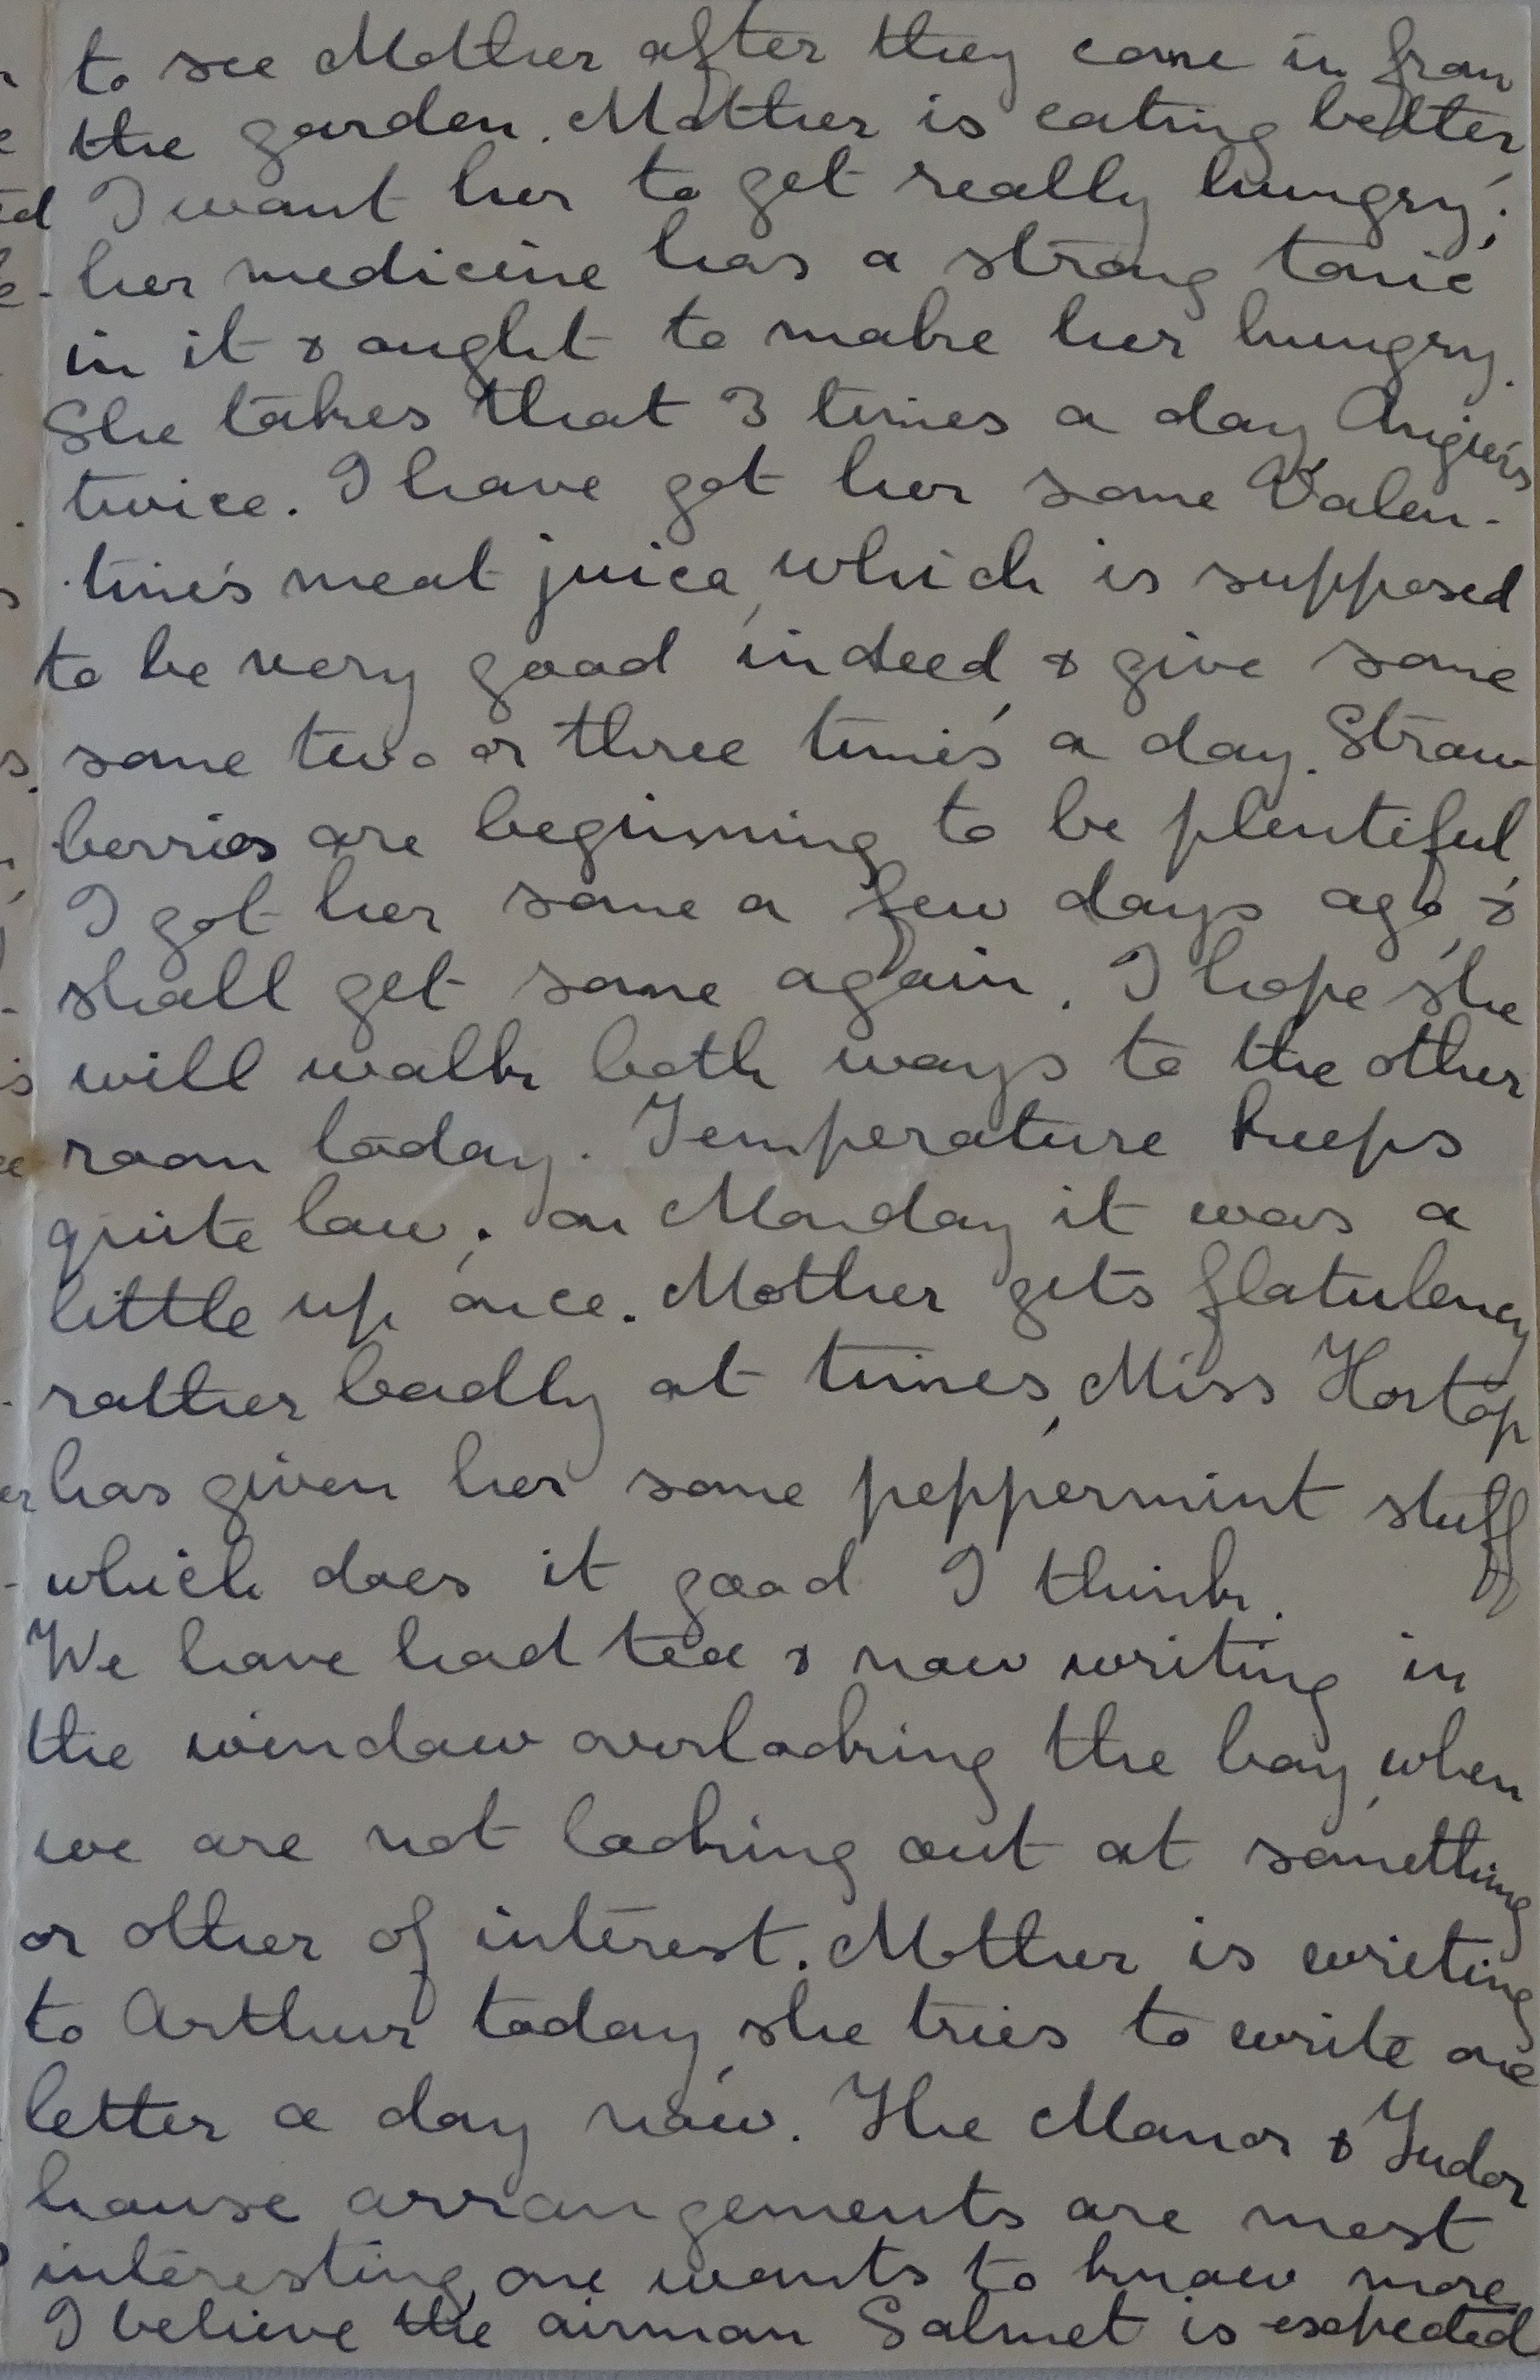 to see Mother after they come in from
the garden. Mother is eating better,
I want her to get really hungry;
her medicine has a strong tonic
in it & ought to make her hungry.
She takes that 3 times a day, Angier's
twice. I have got her some Valen-
tine's meat juice, which is supposed
to be very good indeed, & give some
some two or three times a day. Straw
berries are beginning to be plentiful,
I got her some a few days ago, &
shall get some again. I hope she
will walk both ways to the other
room today. Temperature keeps
quite low; on Monday it was a
little up once. Mother gets flatulency
rather badly at times, Miss Hortop
has given her some peppermint stuff
which does it good I think.
We have had tea & now writing in
the window overlooking the bay, when
we are not looking out at something
or other of interest. Mother is writing
to Arthur today, she tries to write one
letter a day now. The Manor & Tudor
house arrangements are most
interesting, one wants to know more
I believe the airman Salmet is expected